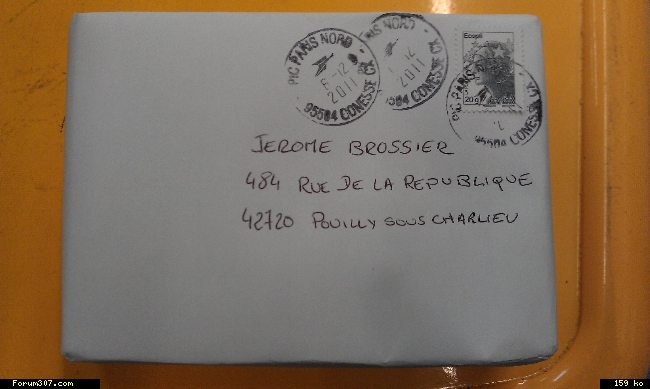 PIC PARIS NORD
6-12
2011
95504 GONESSE CX
PARIS NORD
12
2011
95504 GONESSE CX
Ecopli
20g
PIC PARIS NORD
95504 GONESSE CX
JEROME BROSSIER
484 RUE DE LA REPUBLIQUE
42720 POUILLY SOUS CHARLIEU
Forum307.com
159 ko